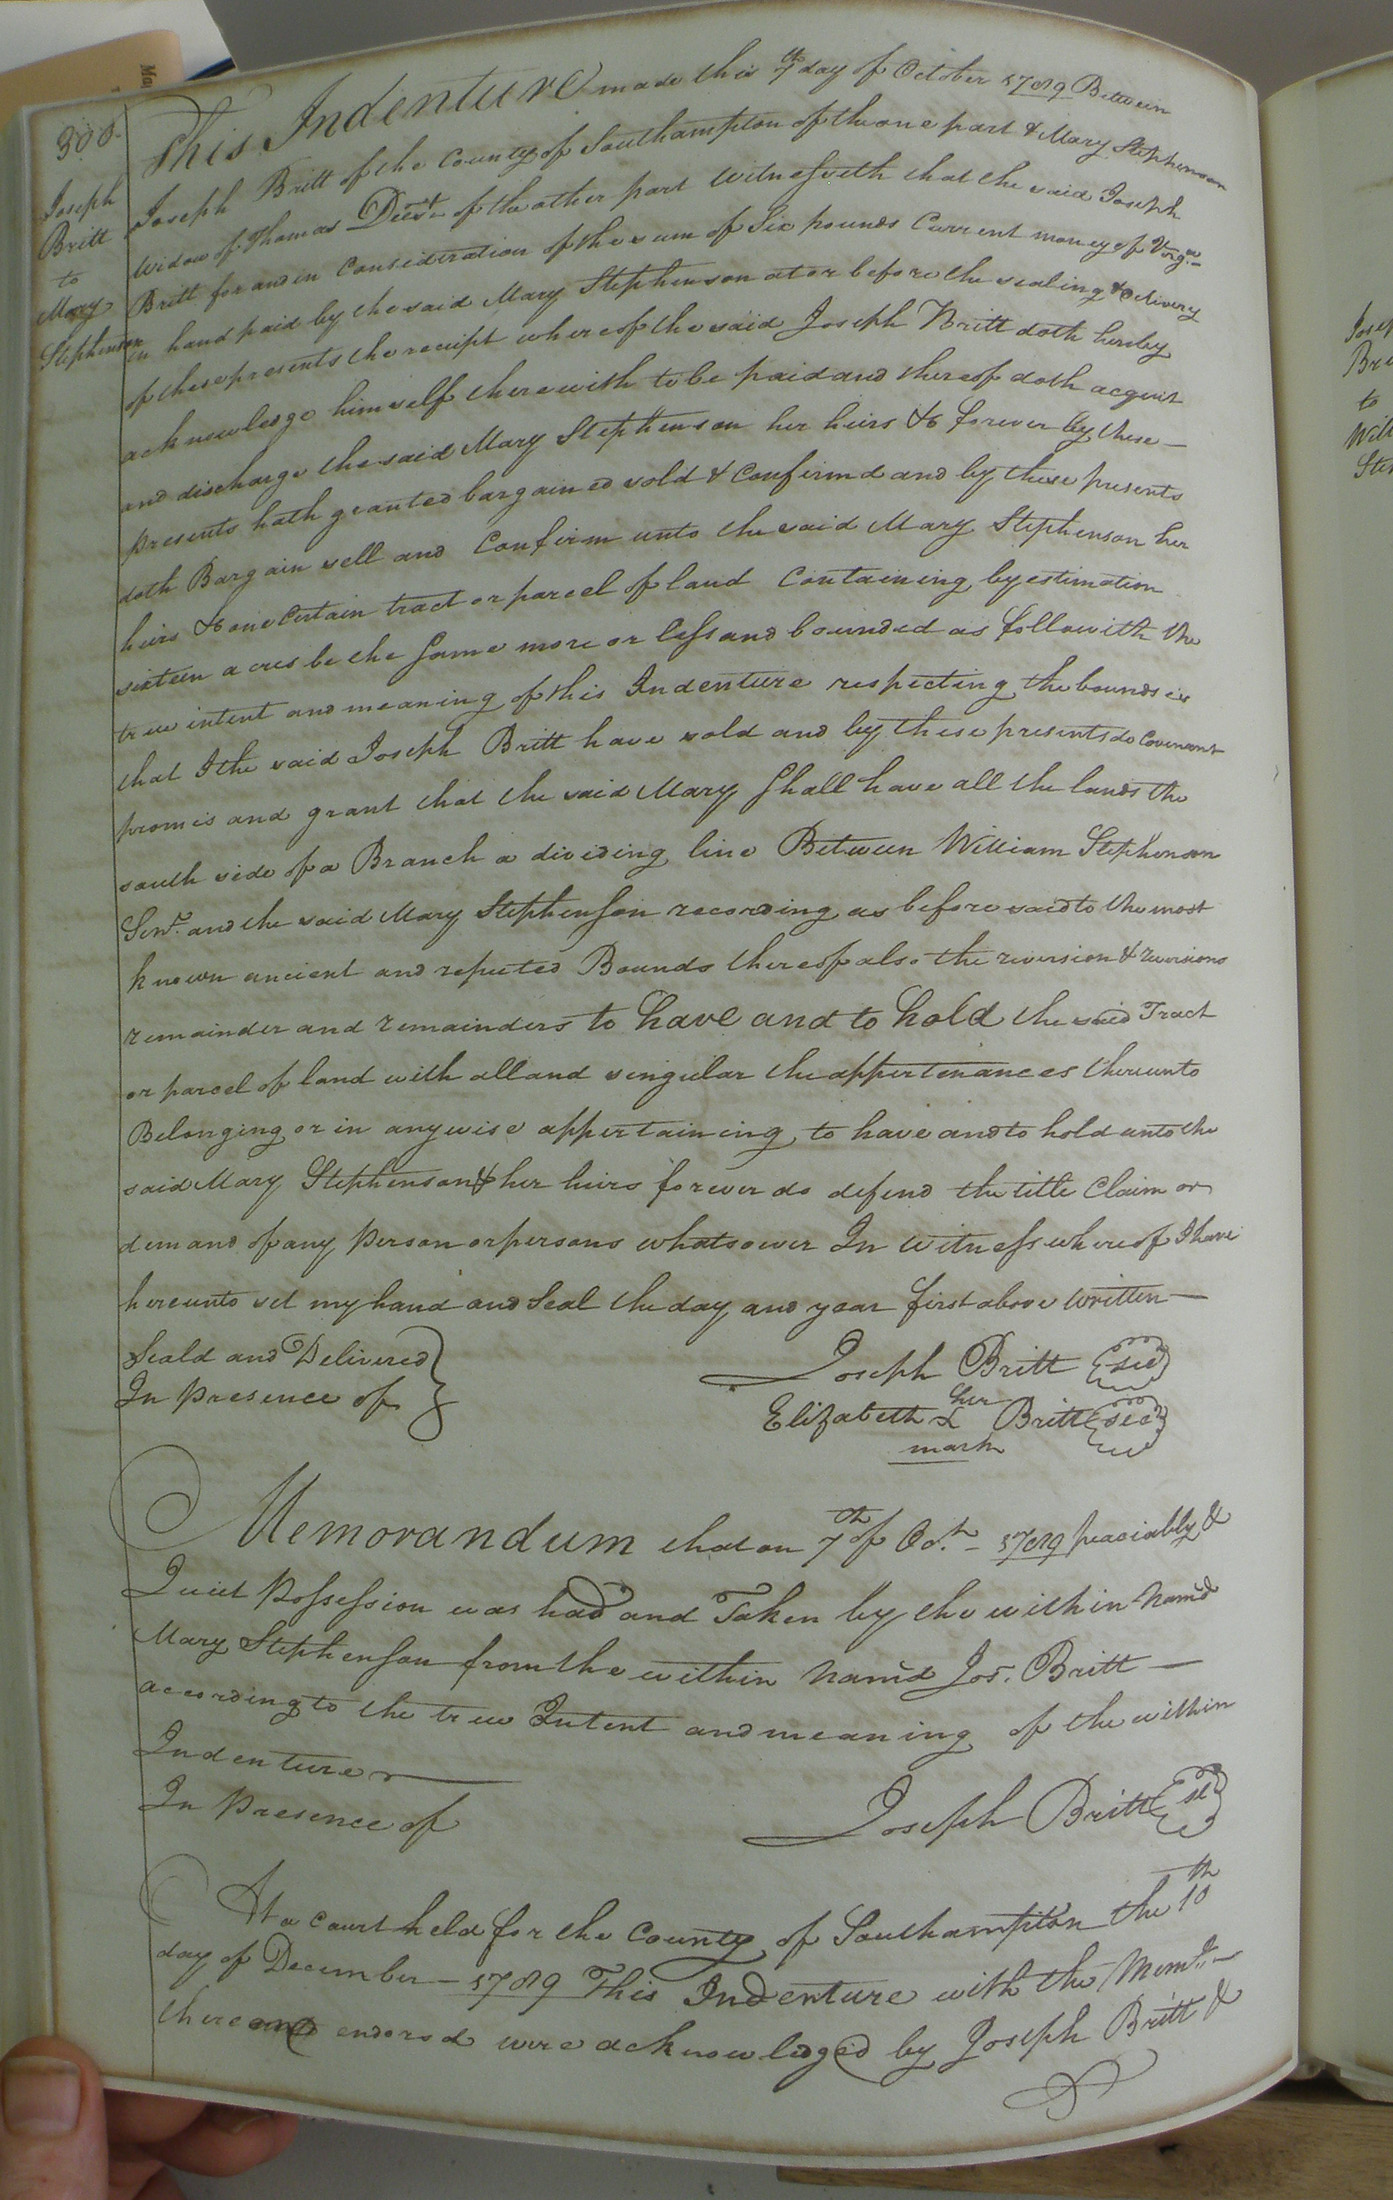 Ma
306.
Joseph
Britt
to
Mary
Stephenson
This Indenture made this 7th day of October 1789 Between
Joseph Britt of the County of Southampton of the one part & Mary Stephenson
Widow of Thomas Decst. of the other part Witnesseth that the said Joseph
Britt for and in Consideration of the sum of Six pounds Current money of Virga.
in hand paid by the said Mary Stephenson at or before the sealing & delivery
of these presents the receipt whereof the said Joseph Britt doth hereby
acknowledge himself therewith to be paid and thereof doth acquit
and discharge the said Mary Stephenson her heirs &c forever by these —
presents hath granted bargained sold & Confirmd and by these presents
doth Bargain sell and Confirm unto the said Mary Stephenson her
heirs &c one Certain tract or parcel of land Containing by estimation
sixteen acres be the same more or less and bounded as followith the
true intent and meaning of this Indenture respecting the bounds is
that I the said Joseph Britt have sold and by these presents do Covenant
promis and grant that the said Mary Shall have all the lands the
south side of a Branch a dividing line Between William Stephenson
Senr. and the said Mary Stephenson recording as before said to the most
known ancient and reputed Bounds thereof also the reversion & reversions
remainder and remainders to have and to hold the said Tract
or parcel of land with all and singular the appertenances thereunto
Belonging or in anywise appertaining to have and to hold unto the
said Mary Stephenson & her heirs forever do defend the title Claim or
demand of any Person or persons whatsoever In Witness whereof I have
hereunto set my hand and Seal the day and year first above written —
Seald and Delivered
In Presence of
Joseph Britt seal
her
Elizabeth X Britt seal
mark
Memorandum that on 7th of Oct. - 1789 peaciably &
Quiet Possession was had and Taken by the within Nam'd
Mary Stephenson from the within Nam'd Jos. Britt —
according to the true Intent and meaning of the within
Indenture
In Presence of
Joseph Britt sl
At a Court held for the County of Southampton the 10th
day of December — 1789 This Indenture with the Memo. —
thereon endorsed were acknowledged by Joseph Britt &
Brit
to
Will